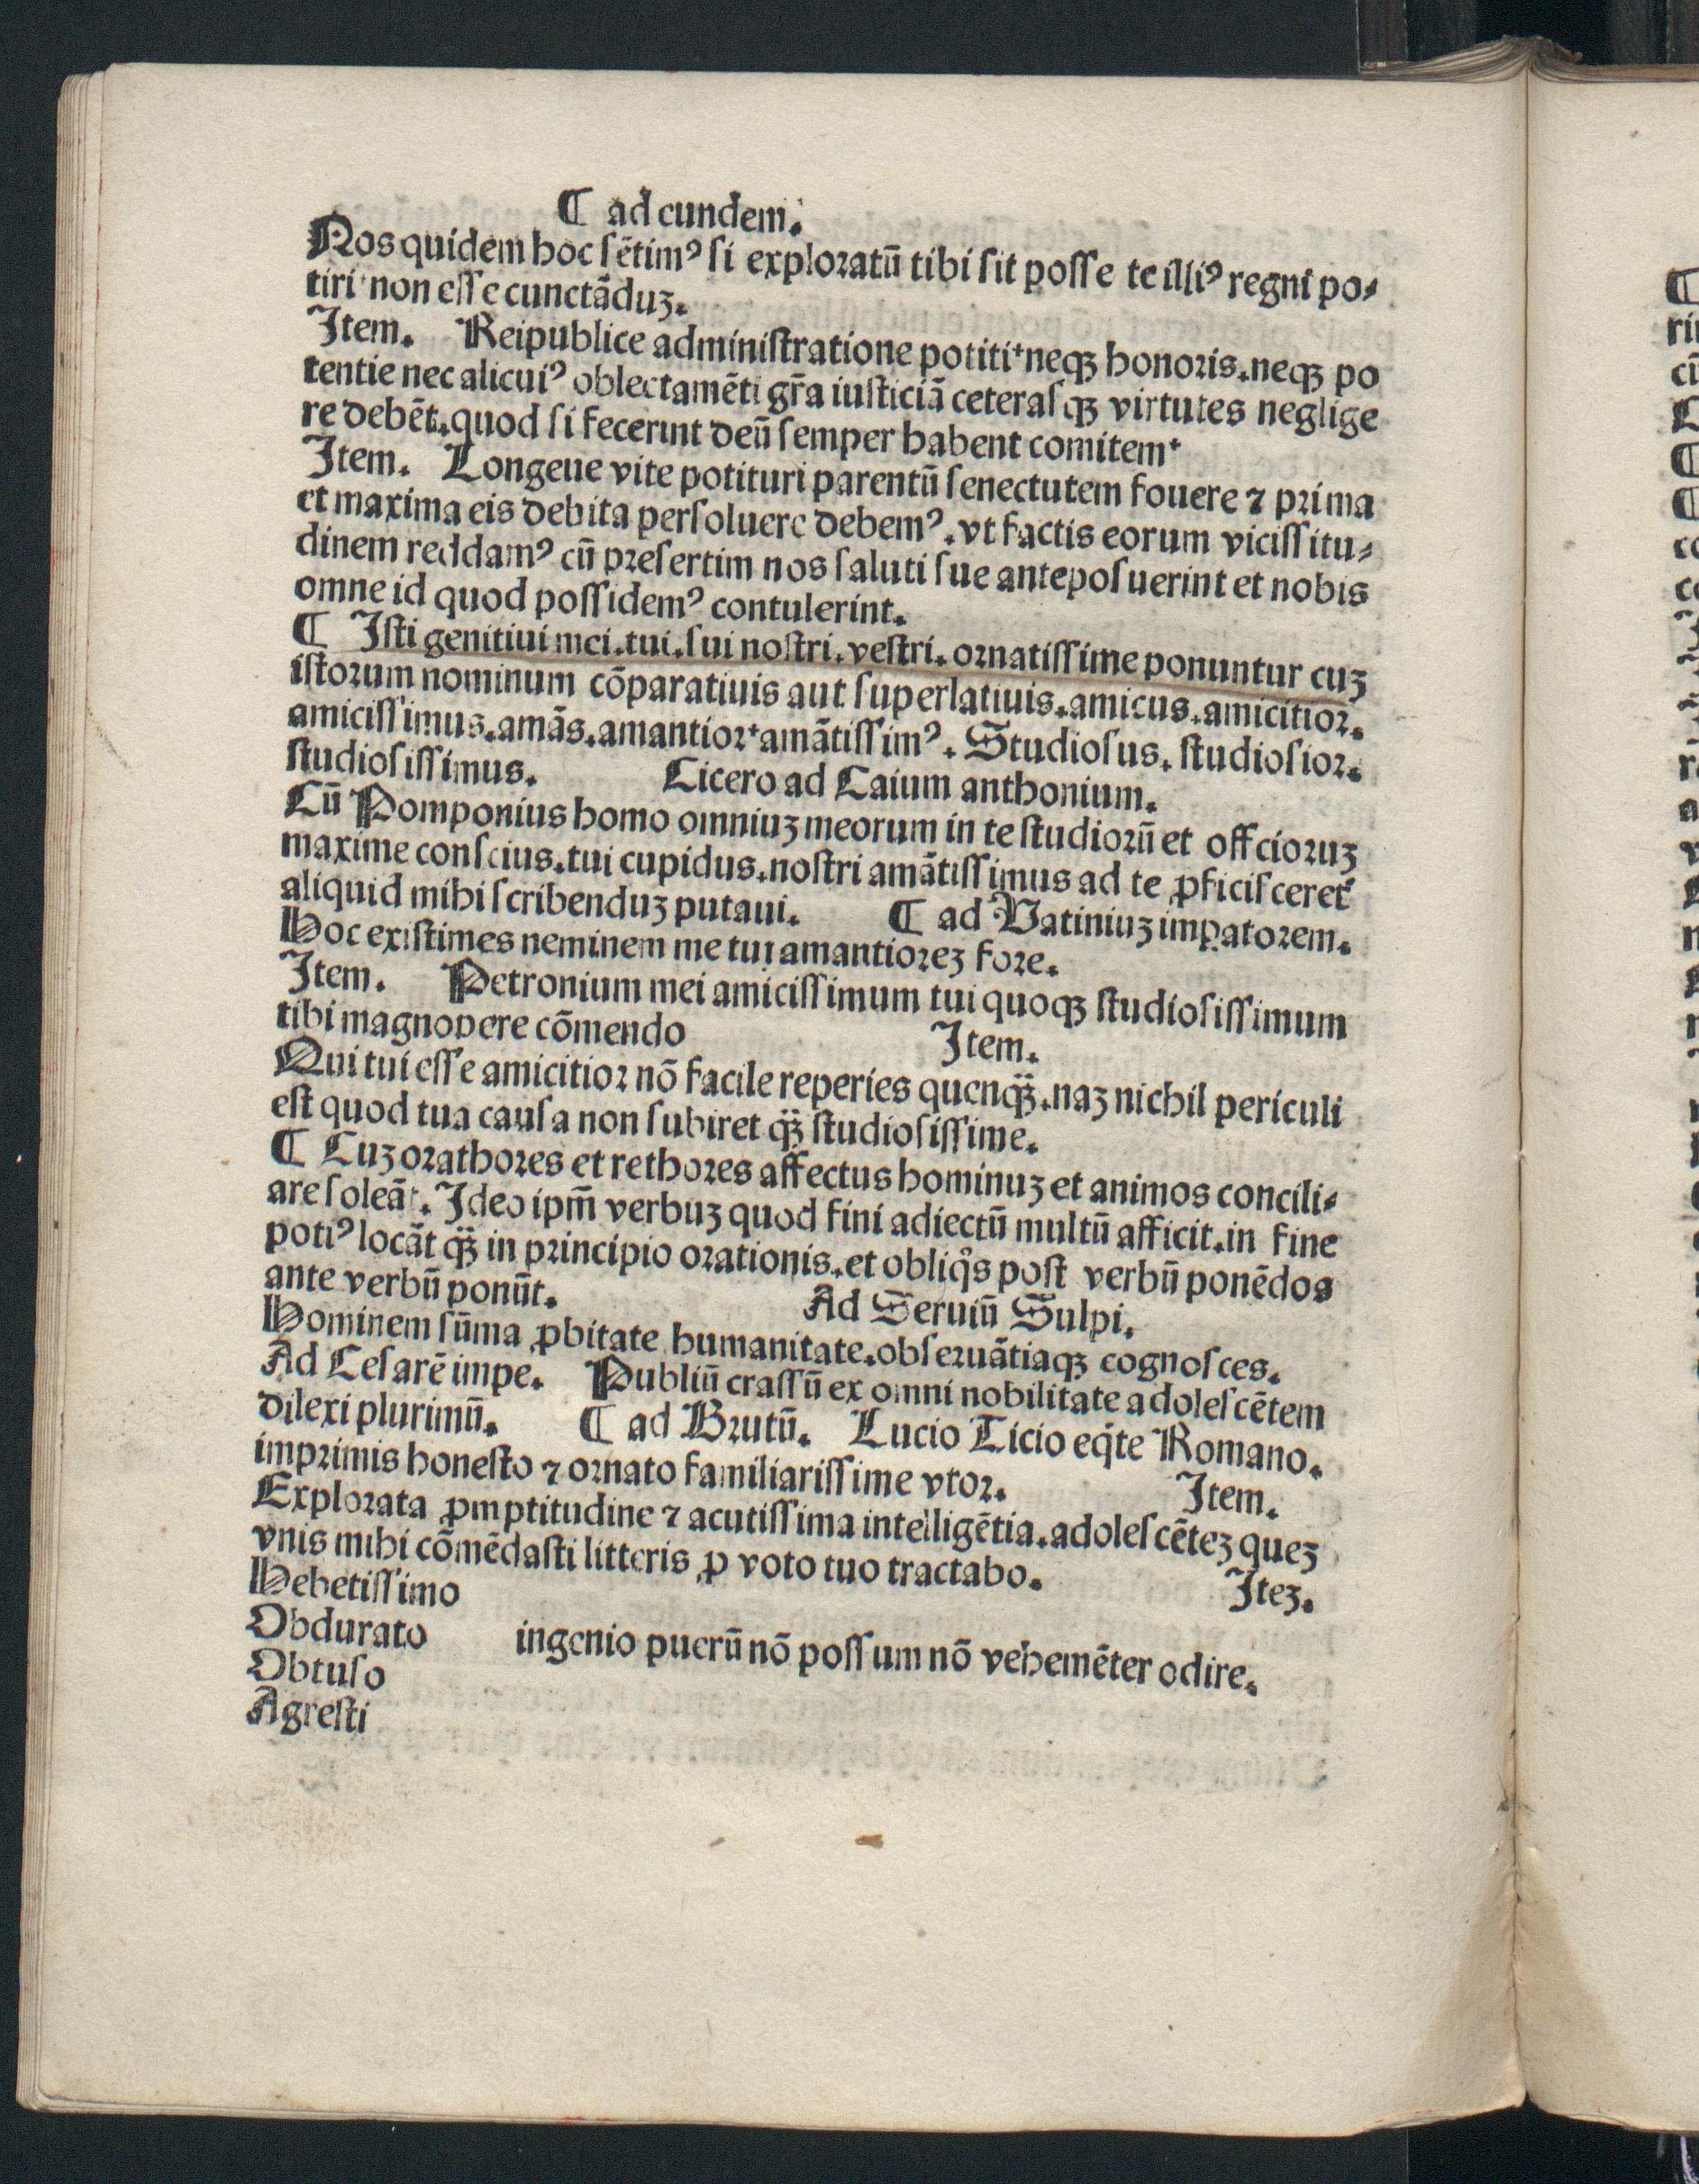 ¶ ad eundem.
Nos quidem hoc sētimꝰ si exploratū tibi sit posse te illiꝰ regni po⸗
tiri non esse cunctāduꝫ.
Item. Reipublice administratione potiti neqꝫ honoris.neqꝫ po
tentie nec alicuiꝰ oblectamēti gr̄a iusticiā ceterasqꝫ virtutes neglige
re debēt.quod si fecerint deū semper habent comitem
Item. Longeue vite potituri parentū senectutem fouere ⁊ prima
et maxima eis debita persoluere debemꝰ.vt factis eorum vicissitu⸗
dinem reddamꝰ cū presertim nos saluti sue anteposuerint et nobis
omne id quod possidemꝰ contulerint.
¶ Isti genitiui mei.tui.sui nostri.vestri.ornatissime ponuntur cuꝫ
istorum nominum cōparatiuis aut superlatiuis.amicus.amicitior.
amicissimus.amās.amantior amātissimꝰ. Studiosus. studiosior.
studiosissimus. Cicero ad Caium anthonium.
Cū Pomponius homo omniuꝫ meorum in te studiorū et offcioruꝫ
maxime conscius.tui cupidus.nostri amātissimus ad te ꝓficisceret
aliquid mihi scribenduꝫ putaui. ¶ ad Vatiniuꝫ imꝑatorem.
Hoc existimes neminem me tui amantioreꝫ fore.
Item. Petronium mei amicissimum tui quoqꝫ studiosissimum
tibi magnopere cōmendo Item.
Qui tui esse amicitior nō facile reperies quenqꝫ̄.naꝫ nichil periculi
est quod tua causa non subiret qꝫ̄ studiosissime.
¶ Cuꝫ orathores et rethores affectus hominuꝫ et animos concili⸗
are soleāt. Ideo ipm̄ verbuꝫ quod fini adiectū multū afficit.in fine
potiꝰ locāt qꝫ̄ in principio orationis.et obliqͦs post verbū ponēdos
ante verbū ponūt. Ad Seruiū Sulpi.
Hominem sūma ꝓbitate humanitate.obseruātiaqꝫ cognosces.
Ad Cesarē impe. Publiū crassū ex omni nobilitate adolescētem
dilexi plurimū. ¶ ad Brutū. Lucio Ticio eqͥte Romano.
imprimis honesto ⁊ ornato familiarissime vtor. Item.
Explorata ꝓmptitudine ⁊ acutissima intelligētia.adolescēteꝫ queꝫ
vnis mihi cōmēdasti litteris ꝓ voto tuo tractabo. Iteꝫ.
Hebetissimo
Obdurato ingenio puerū nō possum nō vehemēter odire.
Obtuso
Agresti